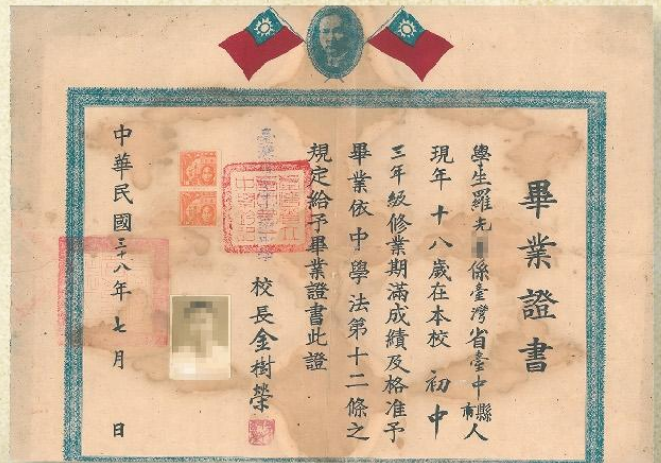 畢業證書
學生羅光係臺灣省臺中縣市人
現年十八歲在本校初中
三年級修業期滿成績及格准予
畢業依中學法第十二條之
規定給予畢業證書此證
校長金樹榮
中華民國三十八年七月 日